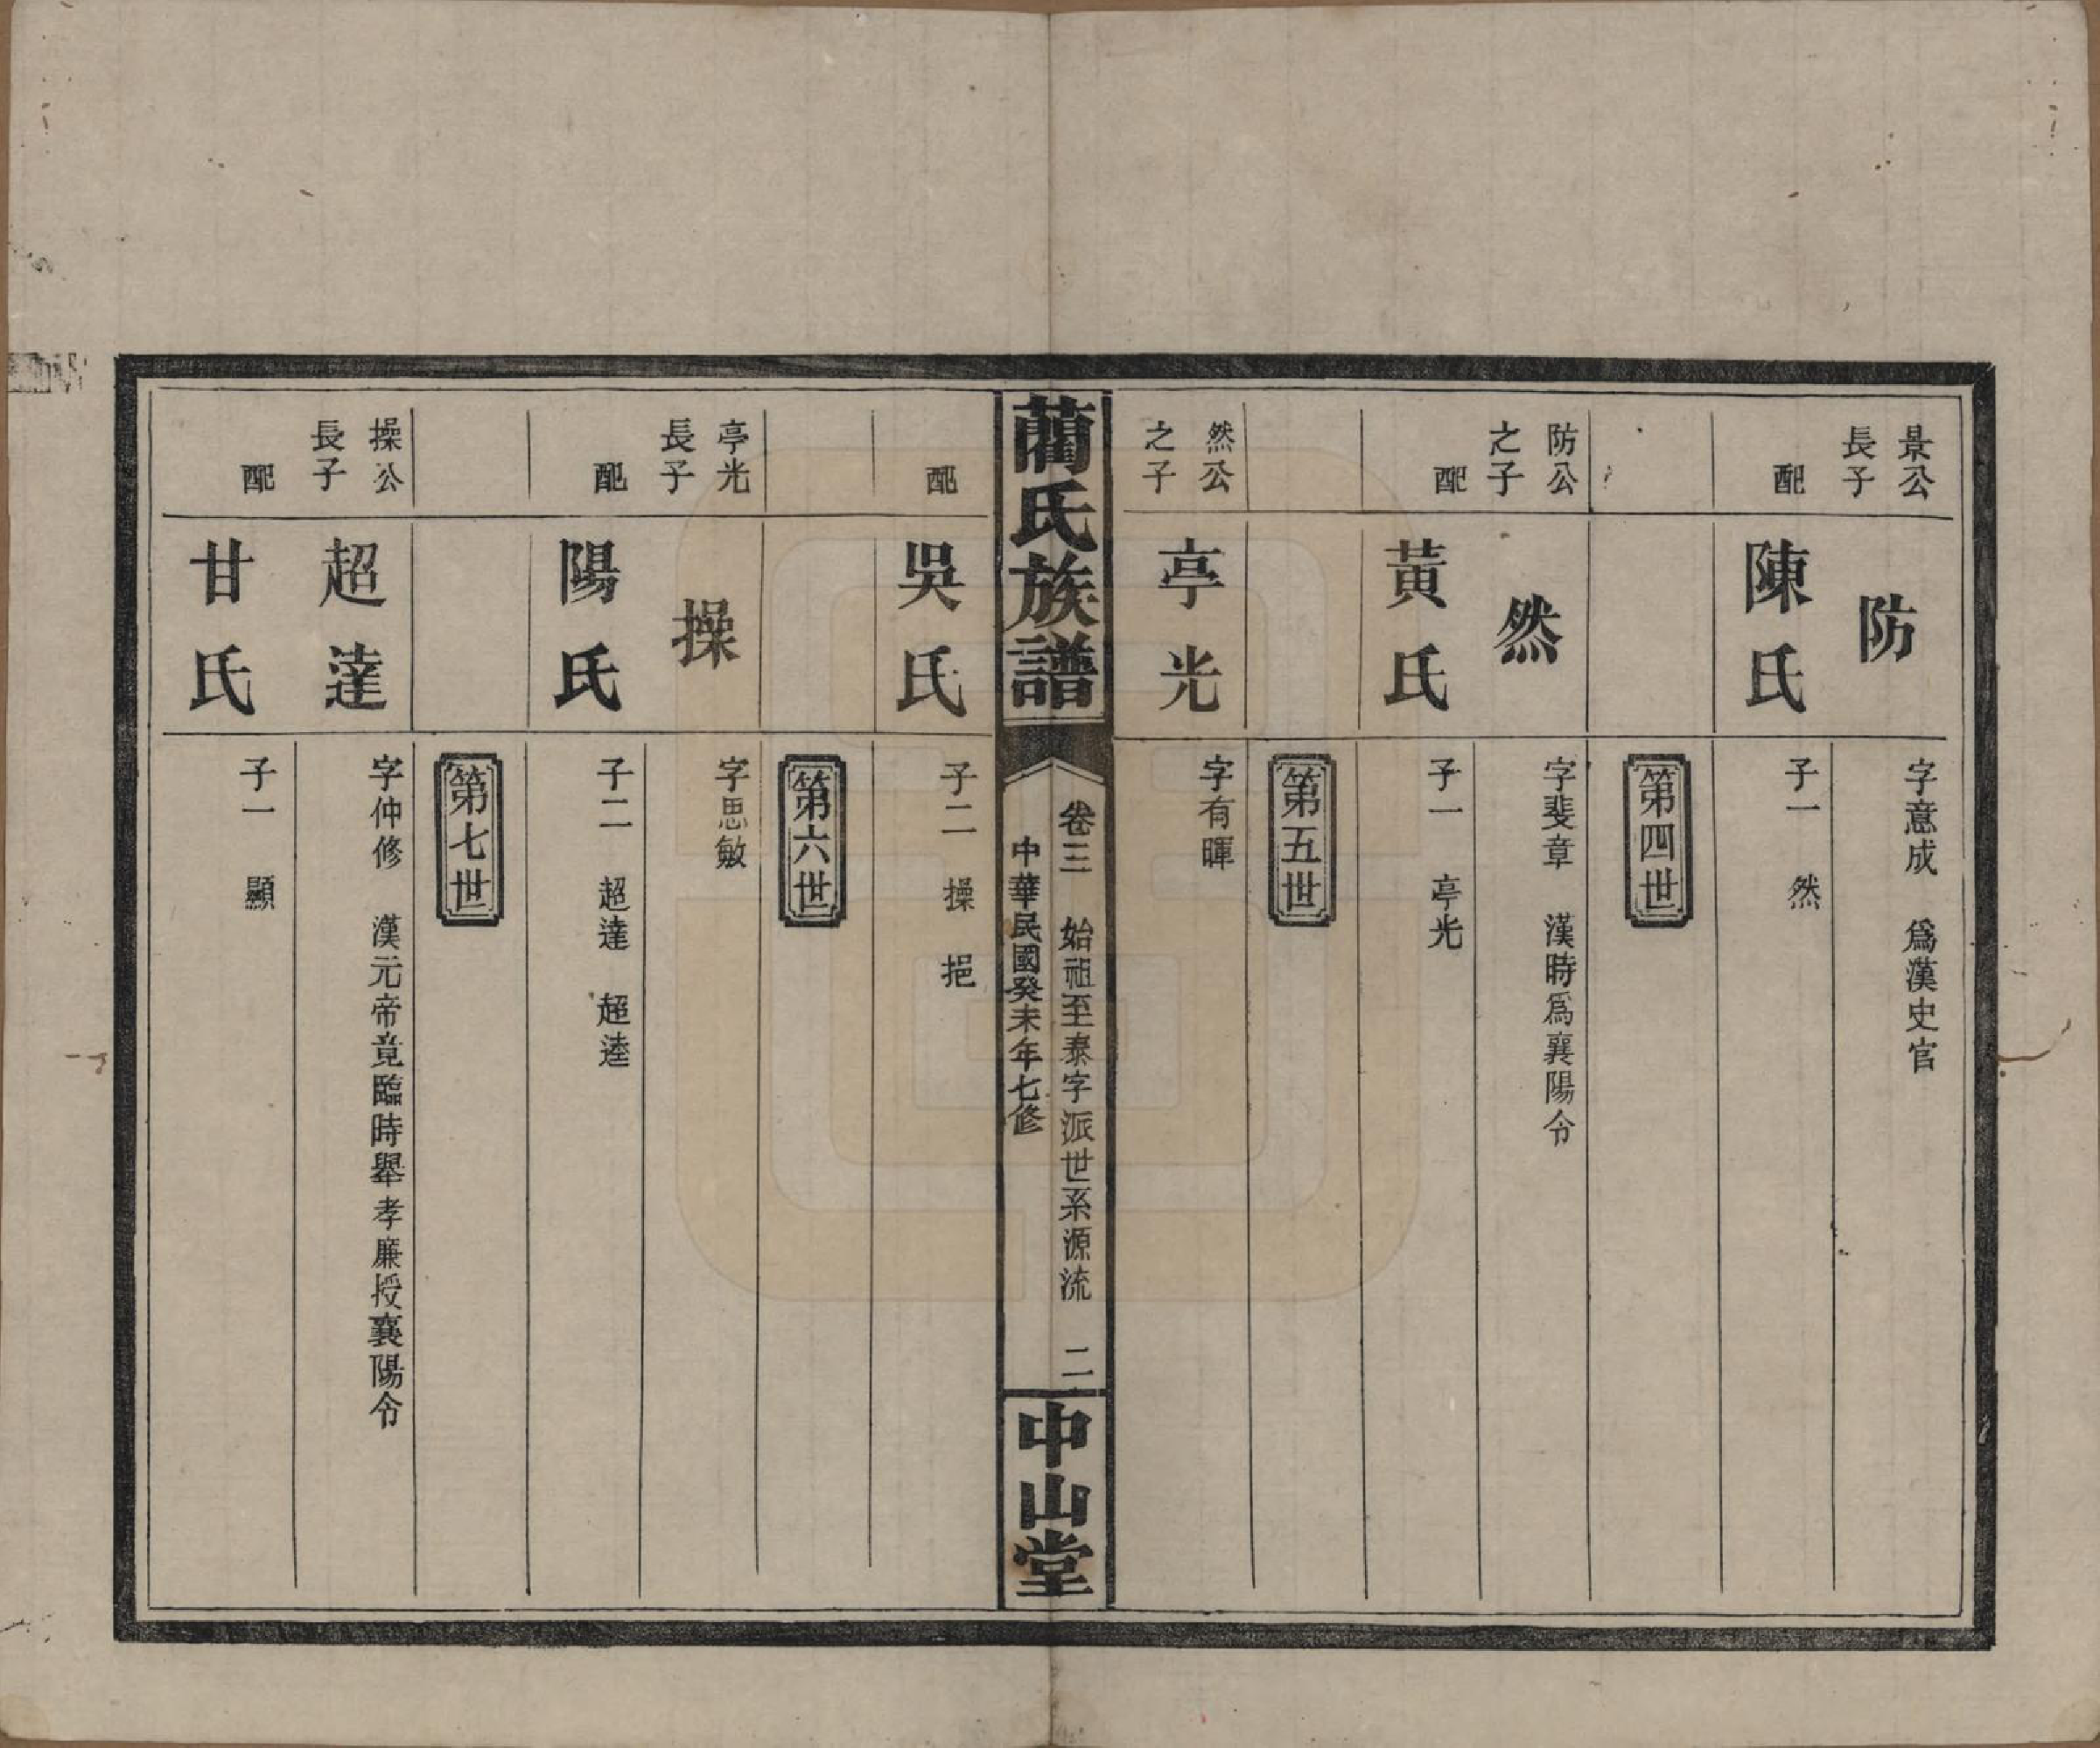 景公長子
防
字意成　爲漢史官
配
陳氏
子一　然
第四世
防公之子
然
字斐章　漢時爲襄陽令
配
黃氏
子一　亭光
第五世
然公之子
亭光
字有暉
藺氏族譜
卷三　始祖至泰字派世系源流　二
中華民國癸未年七修
中山堂
配
吳氏
子二　操　挹
第六世
亭光長子
操
字思敏
配
陽氏
子二　超達　超逵
第七世
操公長子
超達
字仲修　漢元帝竟臨時舉孝廉授襄陽令
配
甘氏
子一　顯